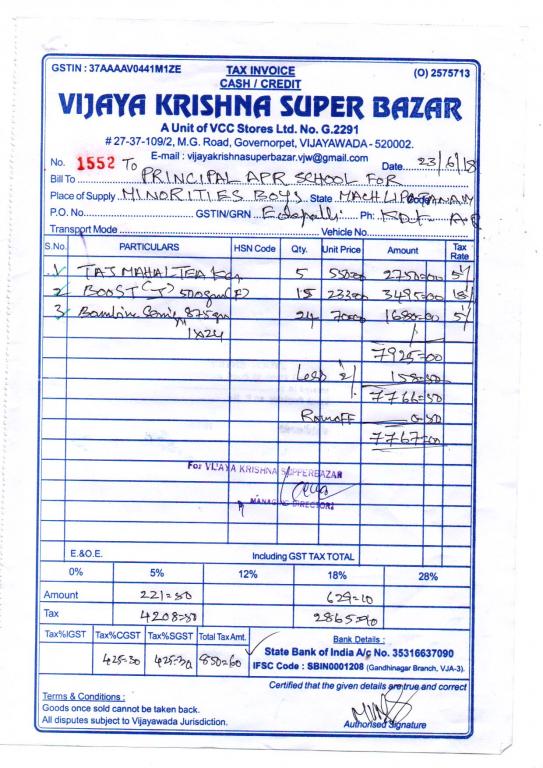 GSTIN : 37AAAAV0441M1ZE TAX INVOICE (O) 2575713
CASH / CREDIT
VIJAYA KRISHNA SUPER BAZAR
A Unit of VCC Stores Ltd. No. G.2291
# 27-37-109/2, M.G. Road, Governorpet, VIJAYAWADA - 520002.
E-mail : vijayakrishnasuperbazar.vjw@gmail.com
No. 1552 To Date 23/6/18
Bill To PRINCIPAL APR SCHOOL FOR
Place of Supply MINORITIES BOYS State MACHLIPATANAM
P.O. No. GSTIN/GRN Ph:
Transport Mode Vehicle No.
S.No. PARTICULARS HSN Code Qty. Unit Price Amount Tax Rate
1 TAJ MAHAL TEA 5 550=00 2750=00 5%
2 BOOST (J) 500gm 15 233=00 3495=00 18%
3 875gm 24 70=00 1680=00 5%
1x24
7925=00
Less 2% 158=50
7766=50
Roundoff 0=50
7767=00
For VIJAYA KRISHNA SUPPERBAZAR
MANAGING DIRECTOR
E.&O.E. Including GST TAX TOTAL
0% 5% 12% 18% 28%
Amount 221=50 629=10
Tax 4208=50 2865=90
Tax%IGST Tax%CGST Tax%SGST Total Tax Amt.
425=30 425=30 850=60
Bank Details :
State Bank of India A/c No. 35316637090
IFSC Code : SBIN0001208 (Gandhinagar Branch, VJA-3).
Certified that the given details are true and correct
Terms & Conditions :
Goods once sold cannot be taken back.
All disputes subject to Vijayawada Jurisdiction.
Authorised Signature